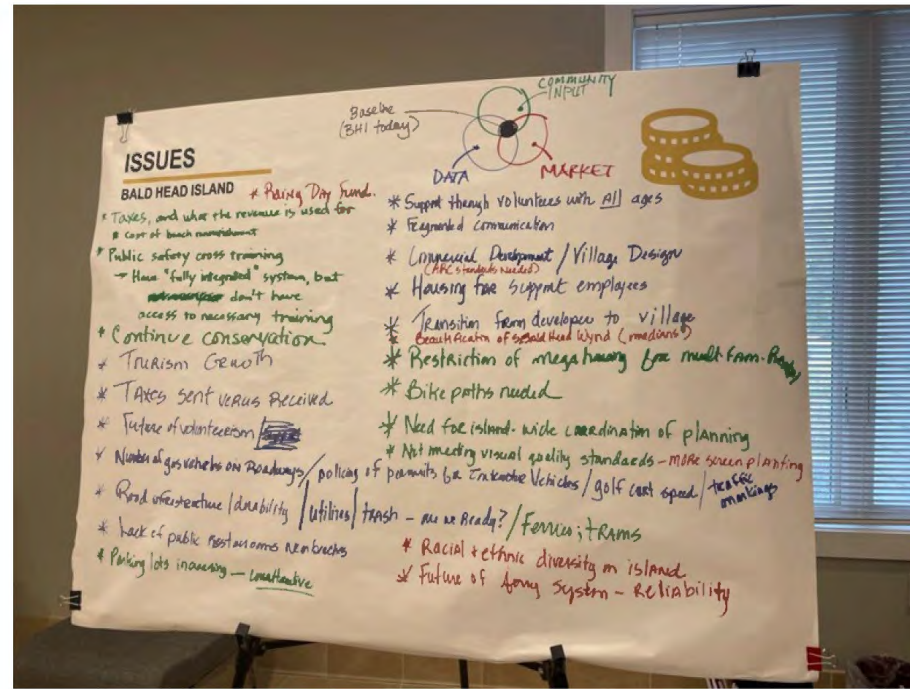 COMMUNITY
INPUT
Baseline
(BHI today)
DATA
MARKET
ISSUES
BALD HEAD ISLAND
* Rainy Day Fund.
* Taxes, and what the revenue is used for
* Cost of beach nourishment
* Public safety cross training
→ Have "fully integrated" system, but
don't have
access to necessary training
* Continue conservation
* Tourism Growth
* Taxes sent versus Received
* Future of volunteerism /
* Number of gas vehicles on Roadways / policing of permits for Vehicles / golf cart speed / traffic
markings
* Road infrastructure / durability / utilities / TRASH - are we Ready? / Ferries; trams
* Lack of public Restrooms near beaches
* Parking lots increasing -
* Support through volunteers with All ages
* Fragmented communication
* Commercial Development / Village Design
(ARC standards Needed)
* Housing for support employees
* Transition from developer to village
* Beautification of Bald Head Wynd (medians)
* Restriction of mega housing for mult-Fam-
* Bike paths needed
* Need for island-wide coordination of planning
* Not meeting visual quality standards - MORE screen planting
* Racial + ethnic diversity on island
* Future of ferry system - Reliability